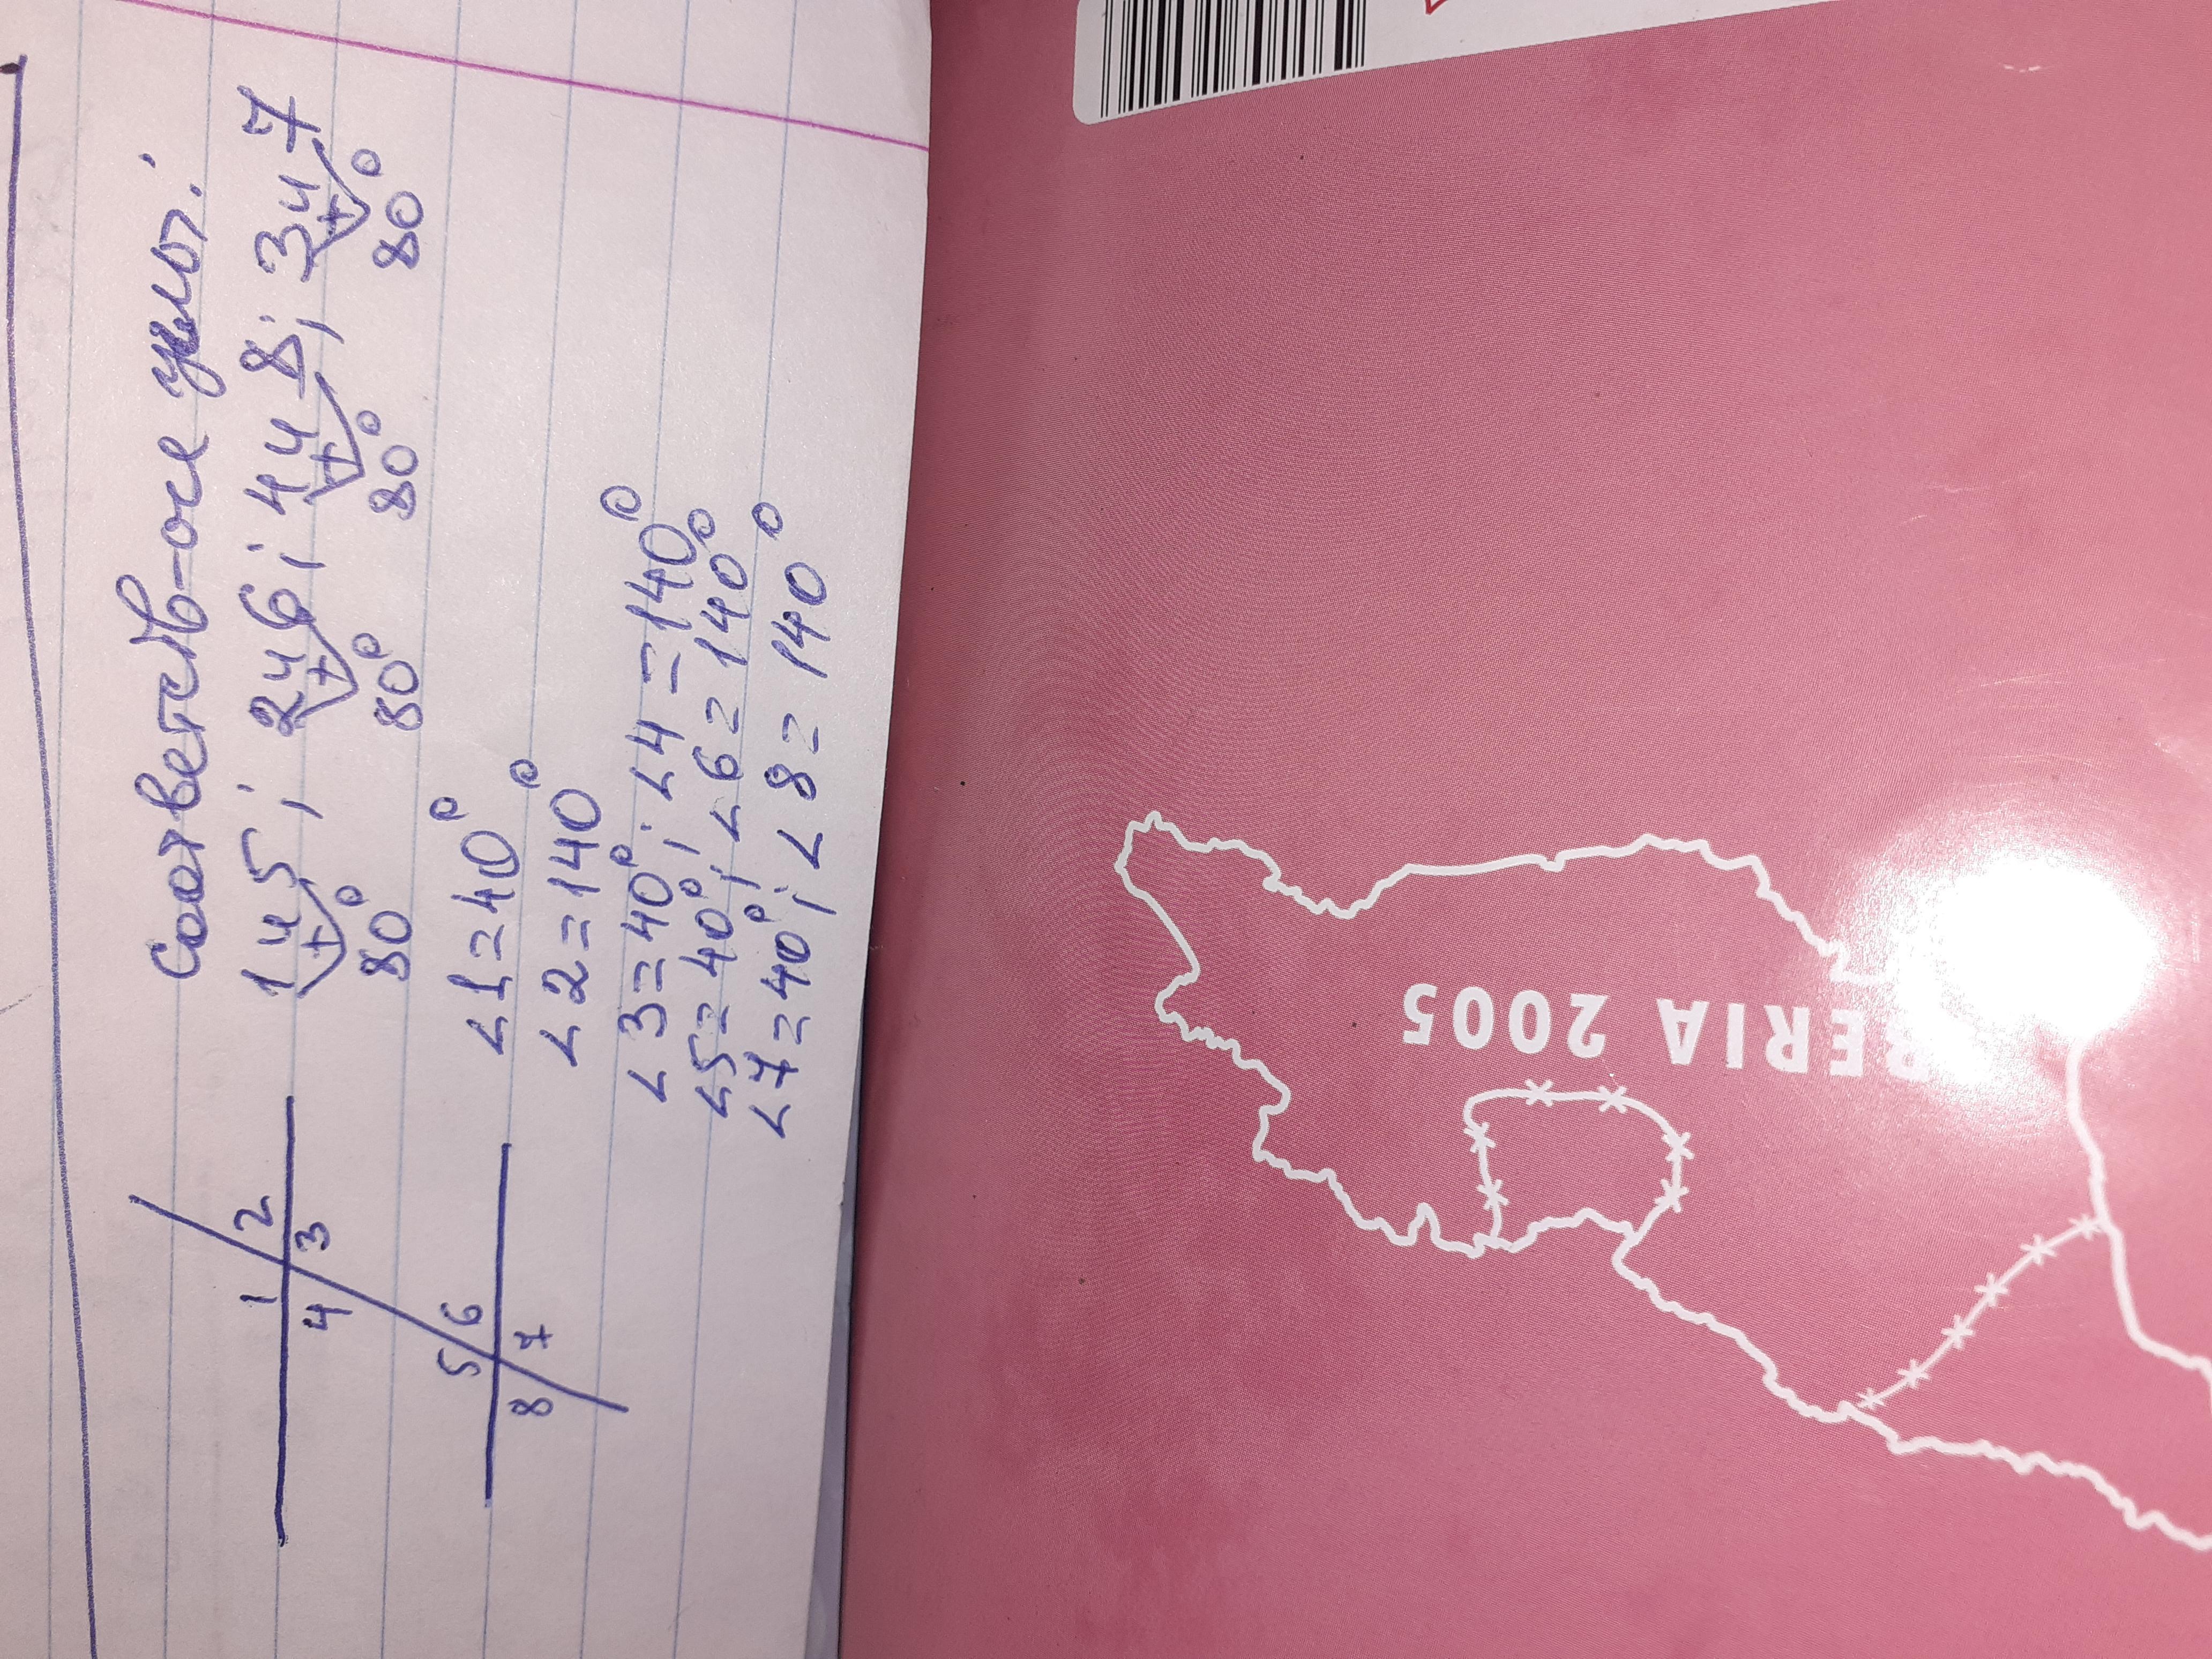 Соответств-ые углы:
1 и 5; 2 и 6; 4 и 8; 3 и 7
+ + + +
80° 80° 80° 80°
1 2
4 3
5 6
8 7
∠1=40°
∠2=140°
∠3=40°; ∠4=140°
∠5=40°; ∠6=140°
∠7=40°; ∠8=140°
ERIA 2005